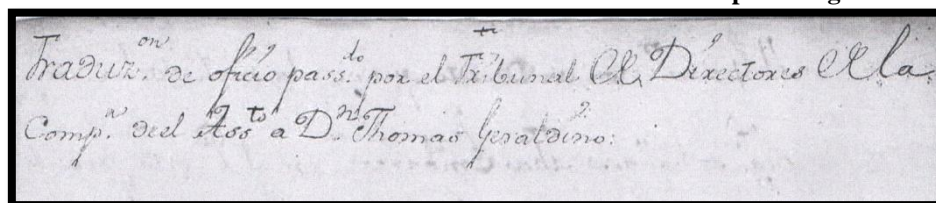 Traduz.on de oficio pass.do por el Tribunal de Directores de la
Comp.a de el Ass.to a D.n Thomas Geraldino: